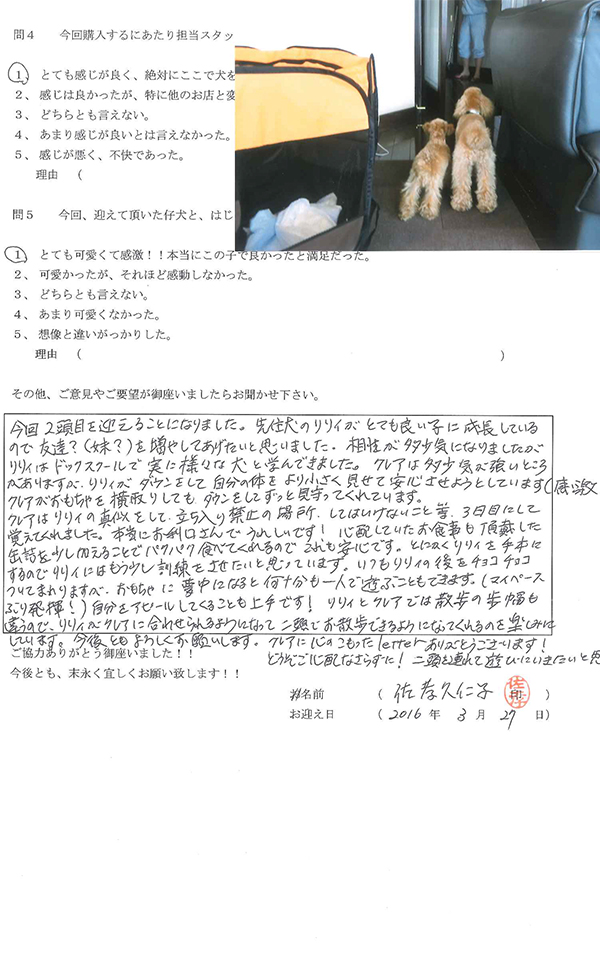 問４　今回購入するにあたり担当スタッ
１、とても感じが良く、絶対にここで犬を
２、感じは良かったが、特に他のお店と変
３、どちらとも言えない。
４、あまり感じが良いとは言えなかった。
５、感じが悪く、不快であった。
理由　（
問５　今回、迎えて頂いた仔犬と、はじ
１、とても可愛くて感激！！本当にこの子で良かったと満足だった。
２、可愛かったが、それほど感動しなかった。
３、どちらとも言えない。
４、あまり可愛くなかった。
５、想像と違いがっかりした。
理由　（　　　　　　　　　　）
その他、ご意見やご要望が御座いましたらお聞かせ下さい。
今回２頭目を迎えることになりました。先住犬のリリィがとても良い子に成長している
ので友達？(妹？)を増やしてあげたいと思いました。相性が多少気になりましたが
リリィはドックスクールで実に様々な犬と学んできました。クレアは多少気が強いところ
がありますが、リリィがダウンをして自分の体をより小さく見せて安心させようとしています(感激
クレアがおもちゃを横取りしてもダウンをしてずっと見守ってくれています。
クレアはリリィの真似をして、立ち入り禁止の場所、してはいけないこと等、３日目にして
覚えてくれました。本当にお利口さんでうれしいです！心配していたお食事も頂戴した
缶詰を少し加えることでパクパク食べてくれるのでこれも安心です。とにかくリリィを手本に
するのでリリィにはもう少し訓練をさせたいと思っています。いつもリリィの後をチョコチョコ
ついてまわりますが、おもちゃに夢中になると何十分も一人で遊ぶこともできます。(マイペース
ぶり発揮！)自分をアピールしてくることも上手です！リリィとクレアでは散歩の歩幅も
違うので、リリィがクレアに合わせられるようになって二頭でお散歩できるようになってくれるのを楽しみに
しています。今後ともよろしくお願いします。クレアに心のこもったletterありがとうございます！
ご協力ありがとう御座いました！！
どうぞご心配なさらずに！二頭を連れて遊びにいきたいと思
今後とも、末永く宜しくお願い致します！！
お名前　（　佐孝久仁子　印　）
お迎え日　（　2016 年　3 月　27 日）